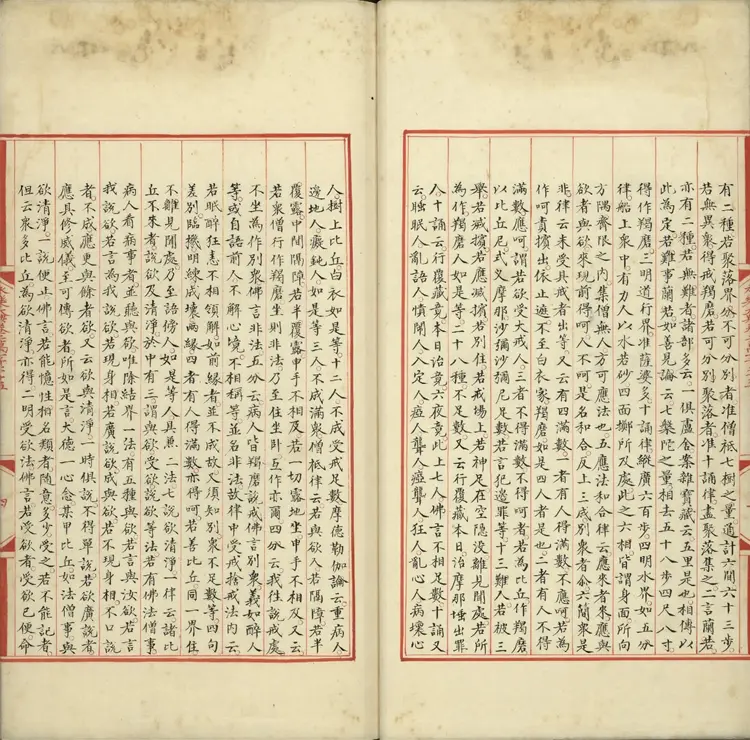 有二種若聚落界分不可分別者准僧祇七樹之量通計六間六十三步
若無異衆得戒羯磨若可分別聚落者准十誦律盡聚落集之二言蘭若
亦有二種若無難者諸部多云一俱盧舍案雜寶藏云五里是也相傳以
此為定若難事蘭若如善見論云七槃陀之量相去五十八步四尺八寸
得作羯磨三明道行界准薩婆多十誦律縱廣六百步四明水界如五分
律船上衆中有力人以水若砂四面擲所及處此之六相皆謂身面所向
方隅齊限之內集僧無人方可應法也五應法和合律云應來者來應與
欲者與欲來現前得呵人不呵是名和合反上三成別衆者僉六簡衆是
非律云未受具戒者出等又云有四滿數一者有人得滿數不應呵若為
作呵責擯出依止遮不至白衣家羯磨如是四人者是也二者有人不得
滿數應呵謂若欲受大戒人三者不得滿數不得呵者若為比丘作羯磨
以比丘尼式叉摩那沙彌沙彌尼足數若言犯邊罪等十三難人若被三
舉若滅擯若應滅擯若別住若戒場上若神足在空隱没離見聞處若所
為作羯磨人如是等二十八種不足數又云行覆藏本日治摩那埵出罪
人十誦云行覆藏竟本日治竟六夜竟此上七人佛言不相足數十誦又
云睡眠人亂語人憒鬧人入定人瘂人聾人瘂聾人狂人亂心人病壞心
人樹上比丘白衣如是等十二人不成受戒足數摩德勒伽論云重病人
邊地人癡鈍人如是等三人不成滿衆僧祇律云若與欲人若隔障若半
覆露中間隔障若半覆露中申手不相及若一切露地坐申手不相及又云
若衆僧行作羯磨坐則非法乃至住坐卧互作亦爾四分云我往說戒處
不坐為作別衆佛言非法五分云病人皆羯磨說戒佛言別衆義如醉人
等或自語前人不解心境不相稱等並名非法故律中受戒捨戒法內云
若眠醉狂恚不相領解如前緣者並不成故又須知別衆不足數等四句
差別臨機明練成壞兩緣四者有人得滿數亦得呵若善比丘同一界住
不離見聞處乃至語傍人如是等人具兼二法七說欲清淨一律云諸比
丘不來者說欲及清淨於中有三謂與欲受欲說欲等法若有佛法僧事
病人看病事者並聽與欲唯除結界一法有五種與欲若言與汝欲若言
我說欲若言為我說欲若現身相若廣說欲成與欲若不現身相不口說
者不成應更與餘者欲又云欲與清淨一時俱說不得單說若欲廣說者
應具修威儀至可傳欲者所如是言大德一心念某甲比丘如法僧事與
欲清淨一說便止佛言若能憶性相名類者隨意多少受之若不能記者
但云衆多比丘為欲清淨亦得二明受欲法佛言若受欲者受欲已便命